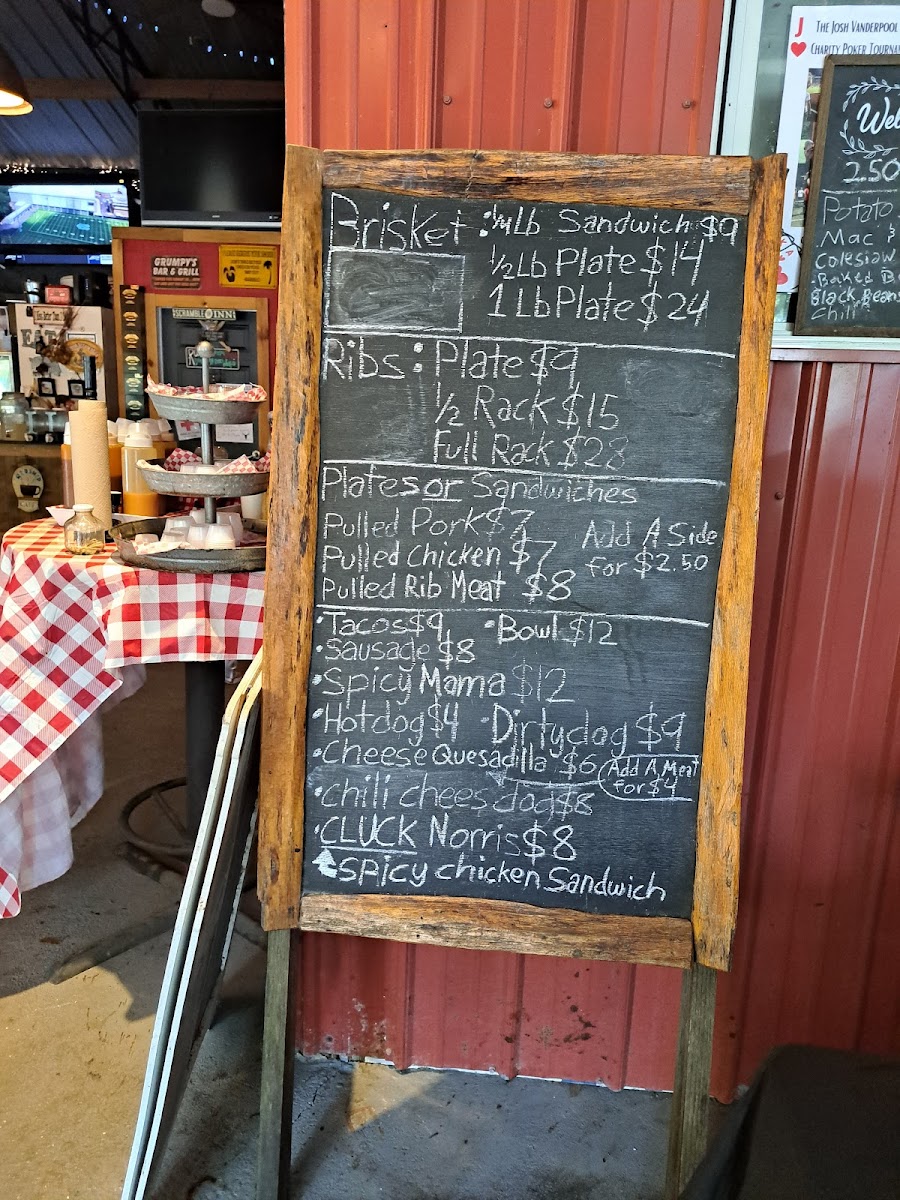 Brisket : 1/4 Lb Sandwich $9
1/2 Lb Plate $14
1 Lb Plate $24
Ribs : Plate $9
1/2 Rack $15
Full Rack $28
Plates or Sandwiches
Pulled Pork $7
Pulled Chicken $7
Pulled Rib Meat $8
Add A Side
for $2.50
·Tacos $9 ·Bowl $12
·Sausage $8
·Spicy Mama $12
·Hotdog $4 ·Dirtydog $9
·Cheese Quesadilla $6
Add A Meat
for $4
·Chili chees dog $8
·CLUCK Norris $8
SPicy chicken Sandwich
THE JOSH VANDERPOOL
CHARITY POKER
2.50
Potato
Mac
Coleslaw
Black Beans
Chili
GRUMPY'S
BAR & GRILL
SCRAMBLE INN!
EAT